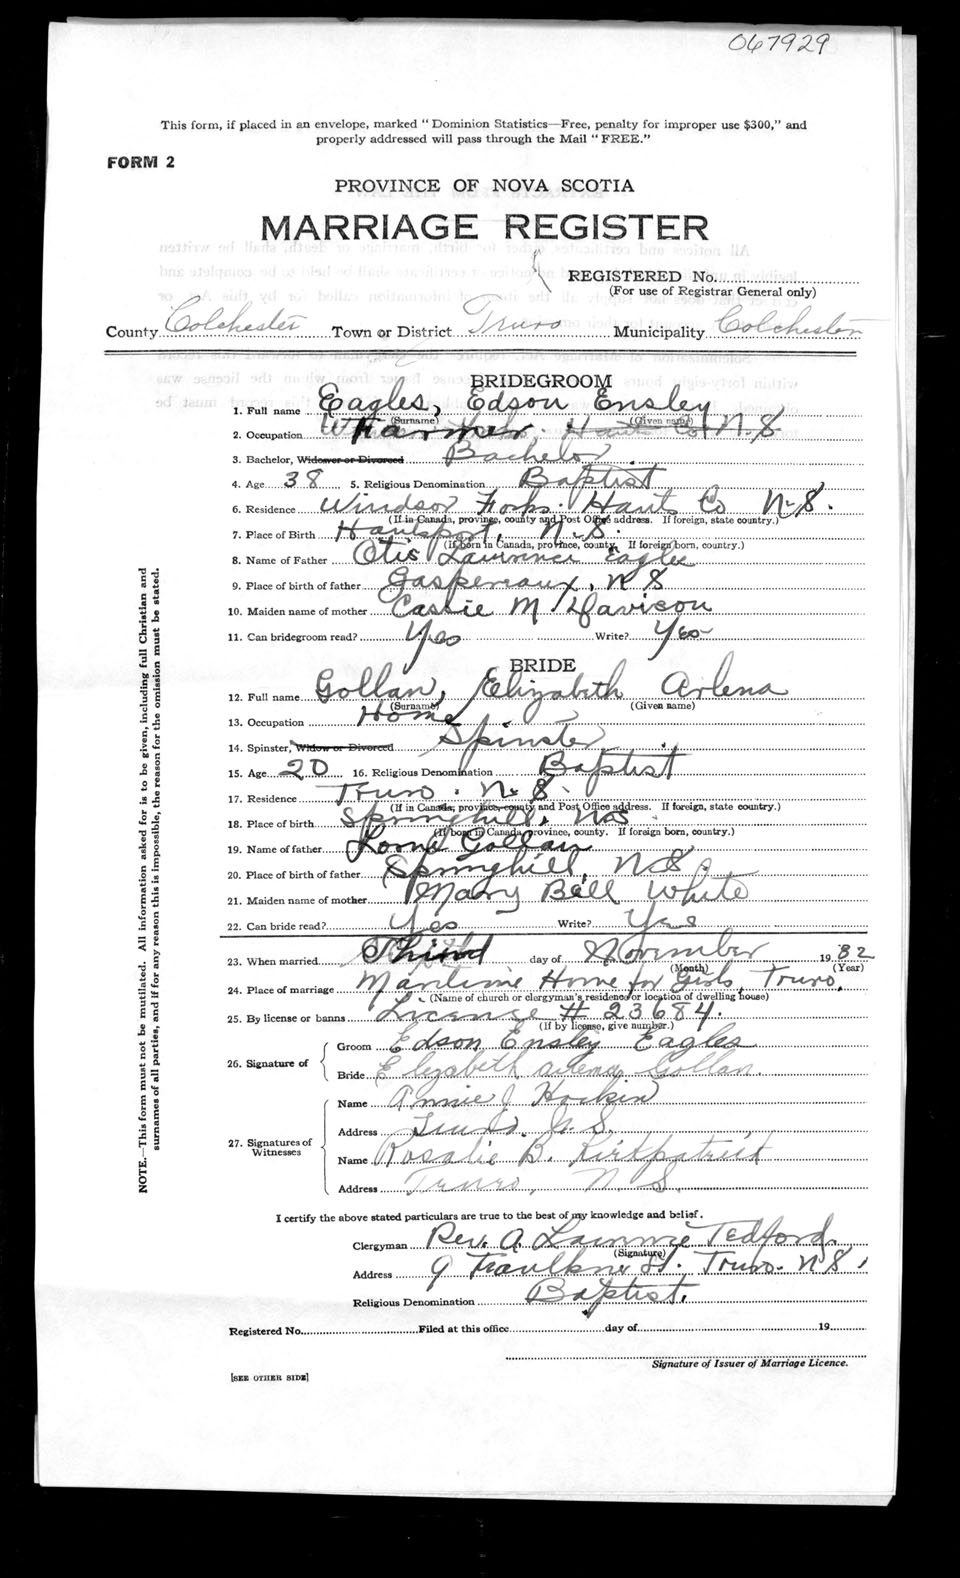 067929
This form, if placed in an envelope, marked "Dominion Statistics—Free, penalty for improper use $300," and
properly addressed will pass through the Mail "FREE."
FORM 2
PROVINCE OF NOVA SCOTIA
MARRIAGE REGISTER
REGISTERED No.
(For use of Registrar General only)
County Colchester Town or District Truro Municipality Colchester
BRIDEGROOM
1. Full name Eagles, Edson Ensley
(Surname) (Given name)
2. Occupation Farmer. Hants Co N.S
3. Bachelor, Widower or Divorced Bachelor
4. Age 38 5. Religious Denomination Baptist
6. Residence Windsor Forks. Hants Co N.S.
(If in Canada, province, county and Post Office address. If foreign, state country.)
7. Place of Birth Hantsport, N.S.
(If born in Canada, province, county. If foreign born, country.)
8. Name of Father Otis Lawrence Eagles
9. Place of birth of father Gaspereaux, N S
10. Maiden name of mother Cassie M Davison
11. Can bridegroom read? Yes Write? Yes
BRIDE
12. Full name Gollan, Elizabeth Arlena
(Surname) (Given name)
13. Occupation Home
14. Spinster, Widow or Divorced Spinster
15. Age 20 16. Religious Denomination Baptist
17. Residence Truro. N. S.
(If in Canada, province, county and Post Office address. If foreign, state country.)
18. Place of birth Springhill, N.S
(If born in Canada, province, county. If foreign born, country.)
19. Name of father Gollan
20. Place of birth of father Springhill, N S.
21. Maiden name of mother Mary Bell White
22. Can bride read? Yes Write? Yes
23. When married Third day of November 1932
(Month) (Year)
24. Place of marriage Maritime Home for Girls, Truro,
(Name of church or clergyman's residence or location of dwelling house)
25. By license or banns License # 23684.
(If by license, give number.)
26. Signature of
Groom Edson Ensley Eagles
Bride Elizabeth Arlena Gollan.
27. Signatures of Witnesses
Name Annie J Hoskin
Address Truro. N.S.
Name Rosalie B. Kirkpatrick
Address Truro, N.S.
I certify the above stated particulars are true to the best of my knowledge and belief.
Clergyman Rev. A. Tedford.
(Signature)
Address 9 Faulkner St. Truro. N S,
Religious Denomination Baptist.
Registered No. Filed at this office day of 19
Signature of Issuer of Marriage Licence.
[SEE OTHER SIDE]
NOTE.—This form must not be mutilated. All information asked for is to be given, including full Christian and
surnames of all parties, and if for any reason this is impossible, the reason for the omission must be stated.